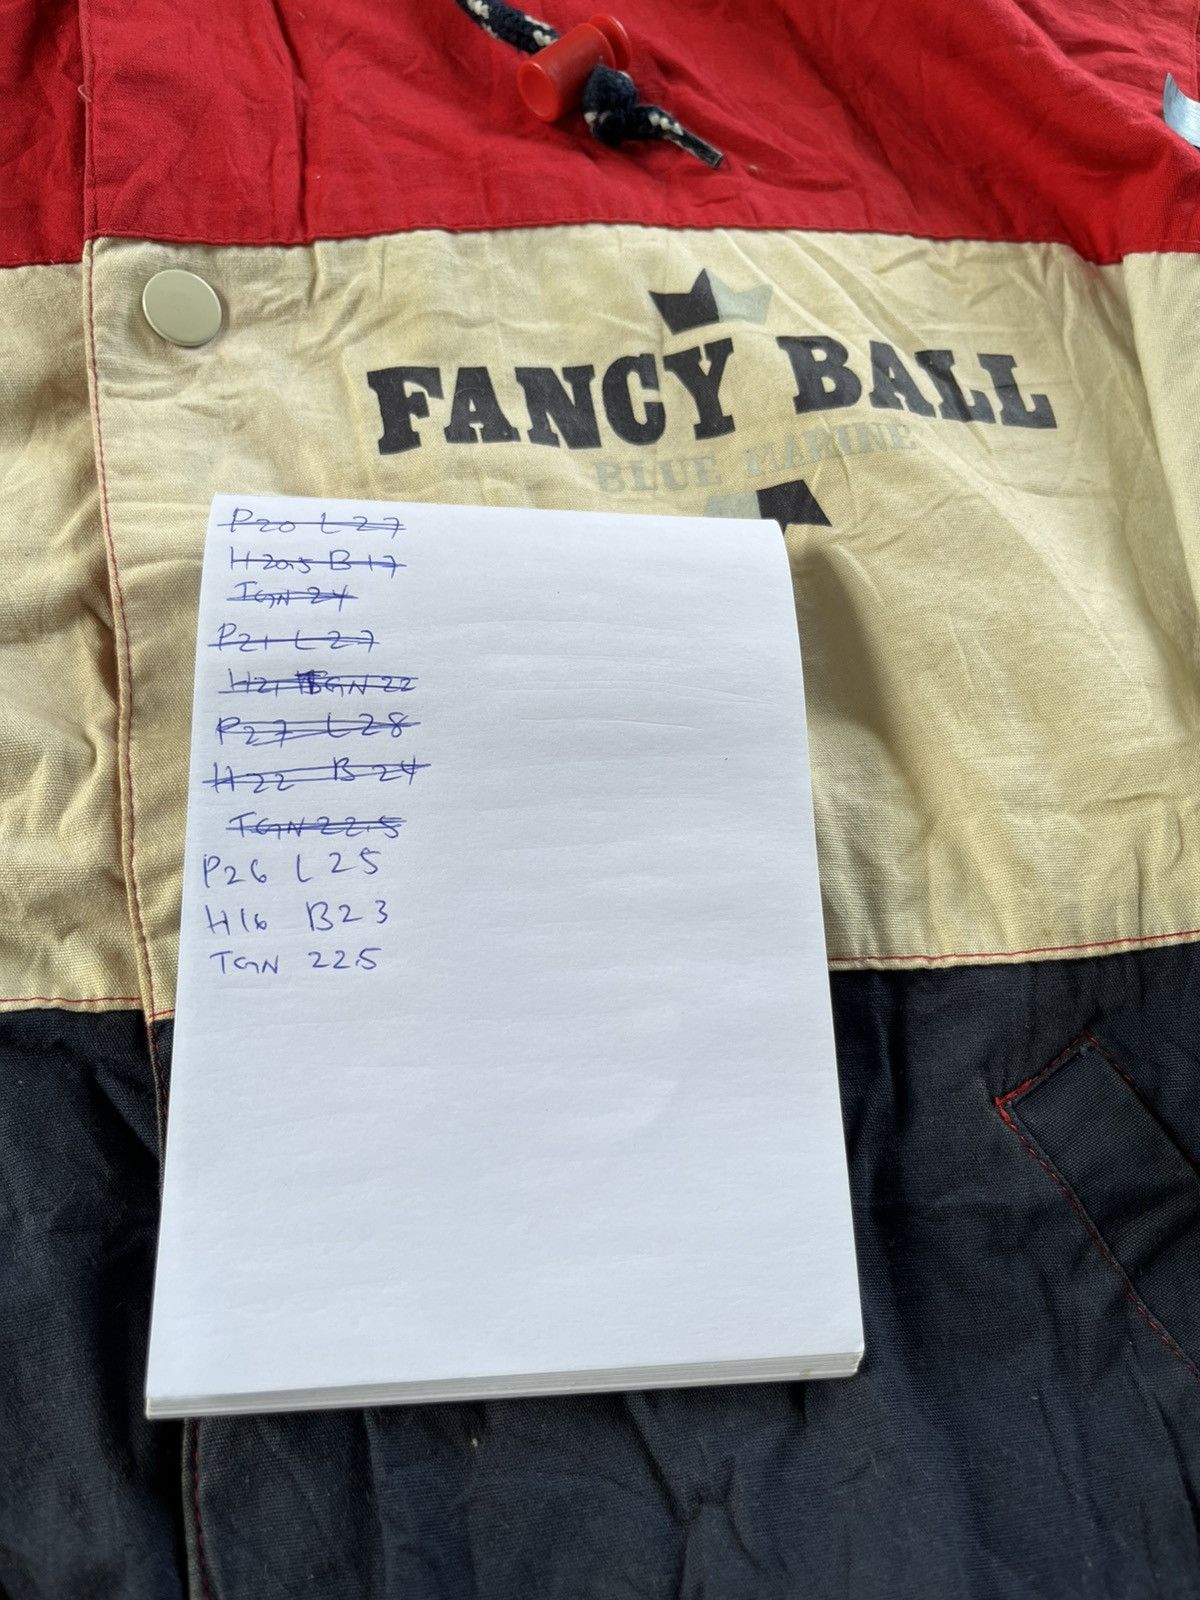 FANCY BALL
BLUE MARINE
P20 L 27
H20.5 B 17
TGN 24
P21 L 27
H21 TGN 22
P27 L 28
H22 B 24
TGN 22.5
P26 L 25
H16 B23
TGN 22.5